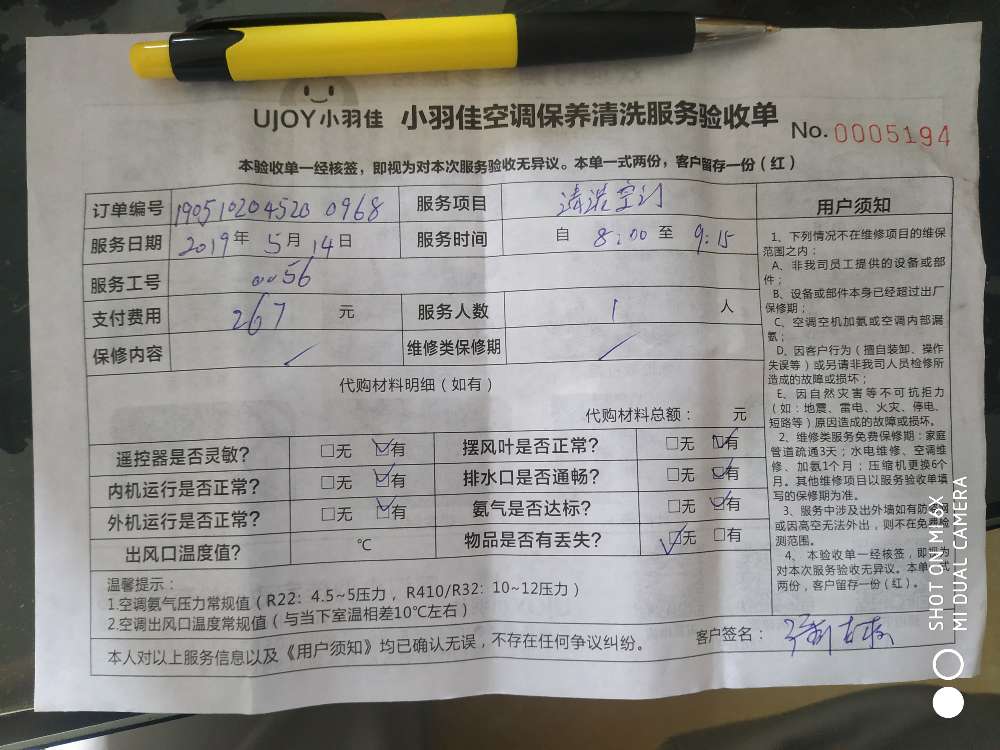 UJOY小羽佳 小羽佳空调保养清洗服务验收单 No. 0005194
本验收单一经核签，即视为对本次服务验收无异议。本单一式两份，客户留存一份（红）
订单编号 190510204520 0968 服务项目 清洗空调
服务日期 2019年 5月 14日 服务时间 自 8:00 至 9:15
服务工号 0056
支付费用 267 元 服务人数 1 人
保修内容 / 维修类保修期 /
代购材料明细（如有）
代购材料总额： 元
遥控器是否灵敏？ □无 ☑有 摆风叶是否正常？ □无 ☑有
内机运行是否正常？ □无 ☑有 排水口是否通畅？ □无 ☑有
外机运行是否正常？ □无 ☑有 氨气是否达标？ □无 ☑有
出风口温度值？ ℃ 物品是否有丢失？ ☑无 □有
温馨提示：
1.空调氨气压力常规值（R22：4.5~5压力，R410/R32：10~12压力）
2.空调出风口温度常规值（与当下室温相差10℃左右）
本人对以上服务信息以及《用户须知》均已确认无误，不存在任何争议纠纷。
客户签名：
用户须知
1、下列情况不在维修项目的维保
范围之内；
A、非我司员工提供的设备或部
件；
B、设备或部件本身已经超过出厂
保修期；
C、空调空机加氨或空调内部漏
氨；
D、因客户行为（擅自装卸、操作
失误等）或另请非我司人员检修所
造成的故障或损坏；
E、因自然灾害等不可抗拒力
（如：地震、雷电、火灾、停电、
短路等）原因造成的故障或损坏。
2、维修类服务免费保修期：家庭
管道疏通3天；水电维修、空调维
修、加氨1个月；压缩机更换6个
月。其他维修项目以服务验收单填
写的保修期为准。
3、服务中涉及出外墙如有防
或因高空无法外出，则不在免费检
测范围。
4、本验收单一经核签，即视为
对本次服务验收无异议。本单一式
两份，客户留存一份（红）。
SHOT ON MI 6X
MI DUAL CAMERA